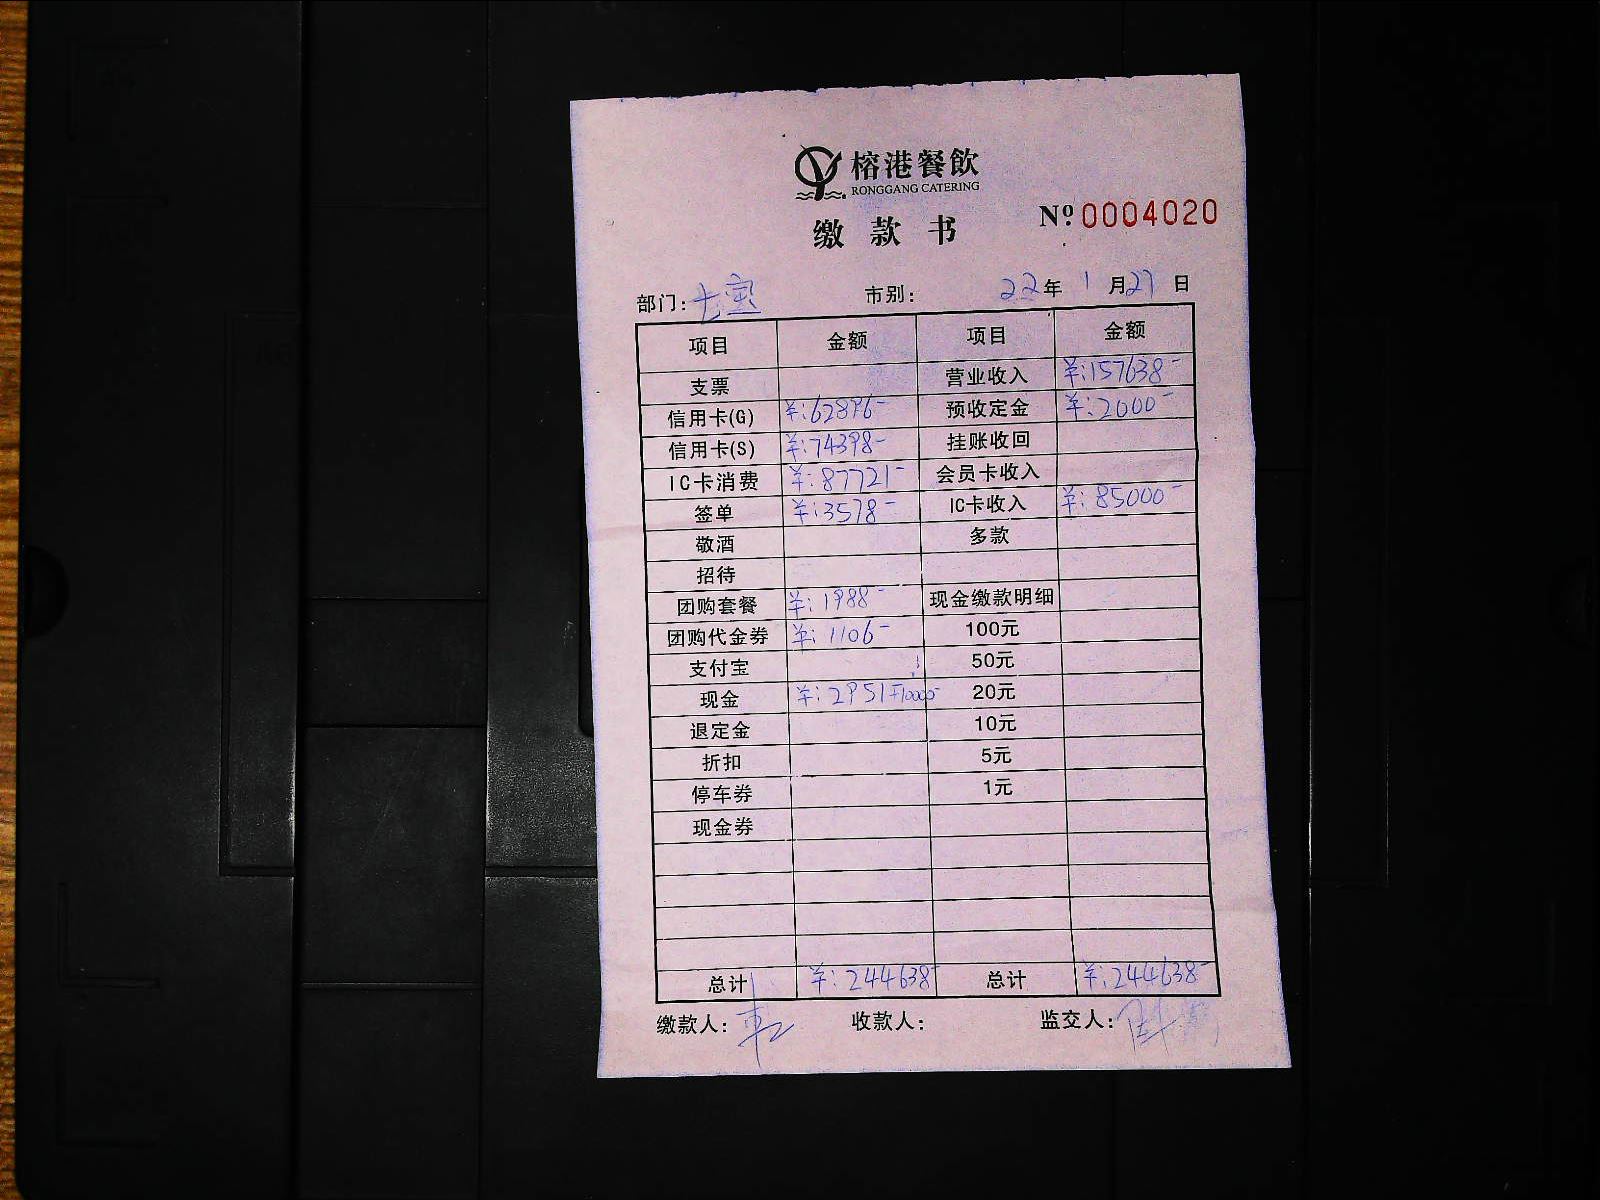 榕港餐飲
RONGGANG CATERING
缴款书 Nº 0004020
部门: 七宝 市别: 22年 1月27日
项目 金额 项目 金额
支票 营业收入 ¥:157638-
信用卡(G) ¥:62896- 预收定金 ¥:2000-
信用卡(S) ¥:74398- 挂账收回
IC卡消费 ¥:87721- 会员卡收入
签单 ¥:3578- IC卡收入 ¥:85000-
敬酒 多款
招待
团购套餐 ¥:1988- 现金缴款明细
团购代金券 ¥:1106- 100元
支付宝 50元
现金 ¥:2951+10000- 20元
退定金 10元
折扣 5元
停车券 1元
现金券
总计 ¥:244638- 总计 ¥:244638-
缴款人: 收款人: 监交人: